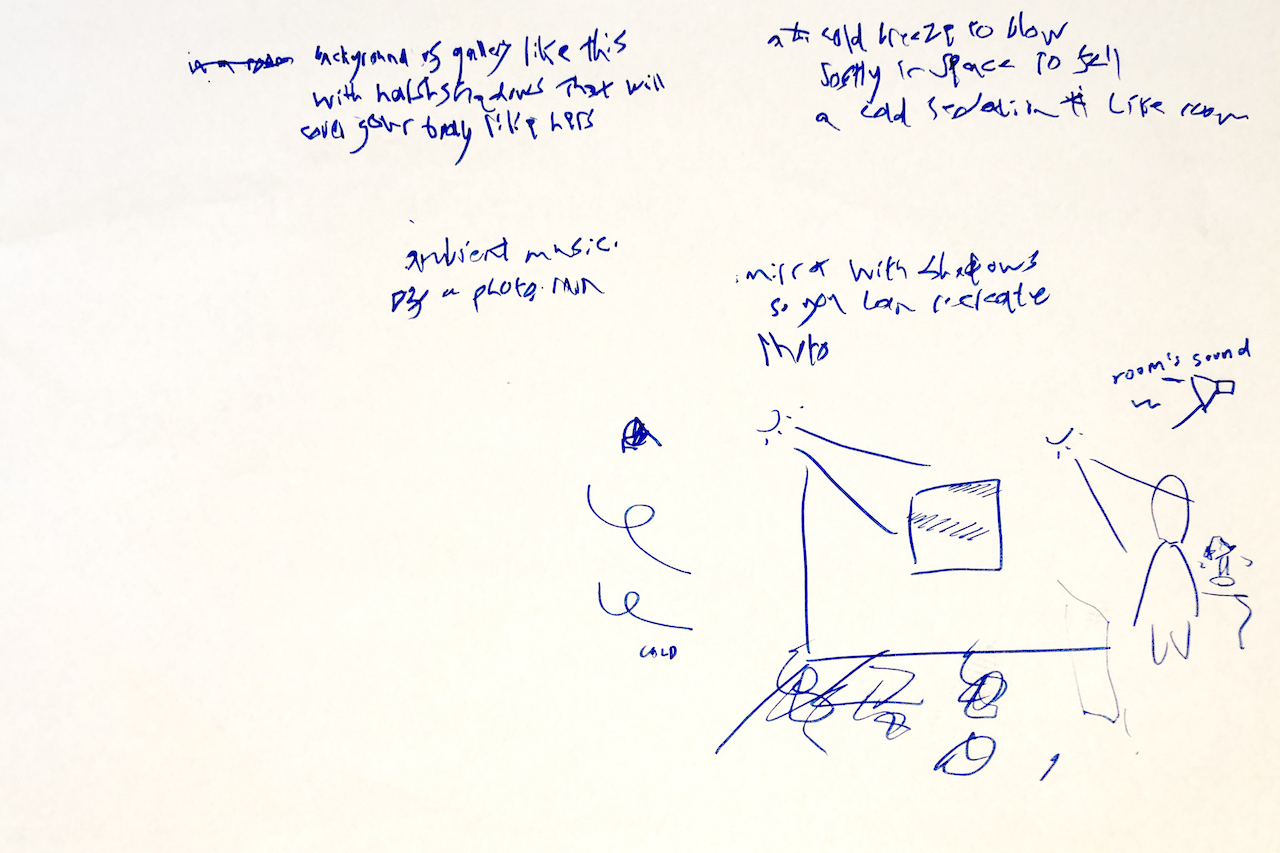 background of gallery like this
with harsh shadows that will
cover your body like hers
a cold breeze to blow
softly in space to feel
a cold sedation like room
ambient music.
by a photo.
mirror with shadows
so you can recreate
photo
room's sound
COLD